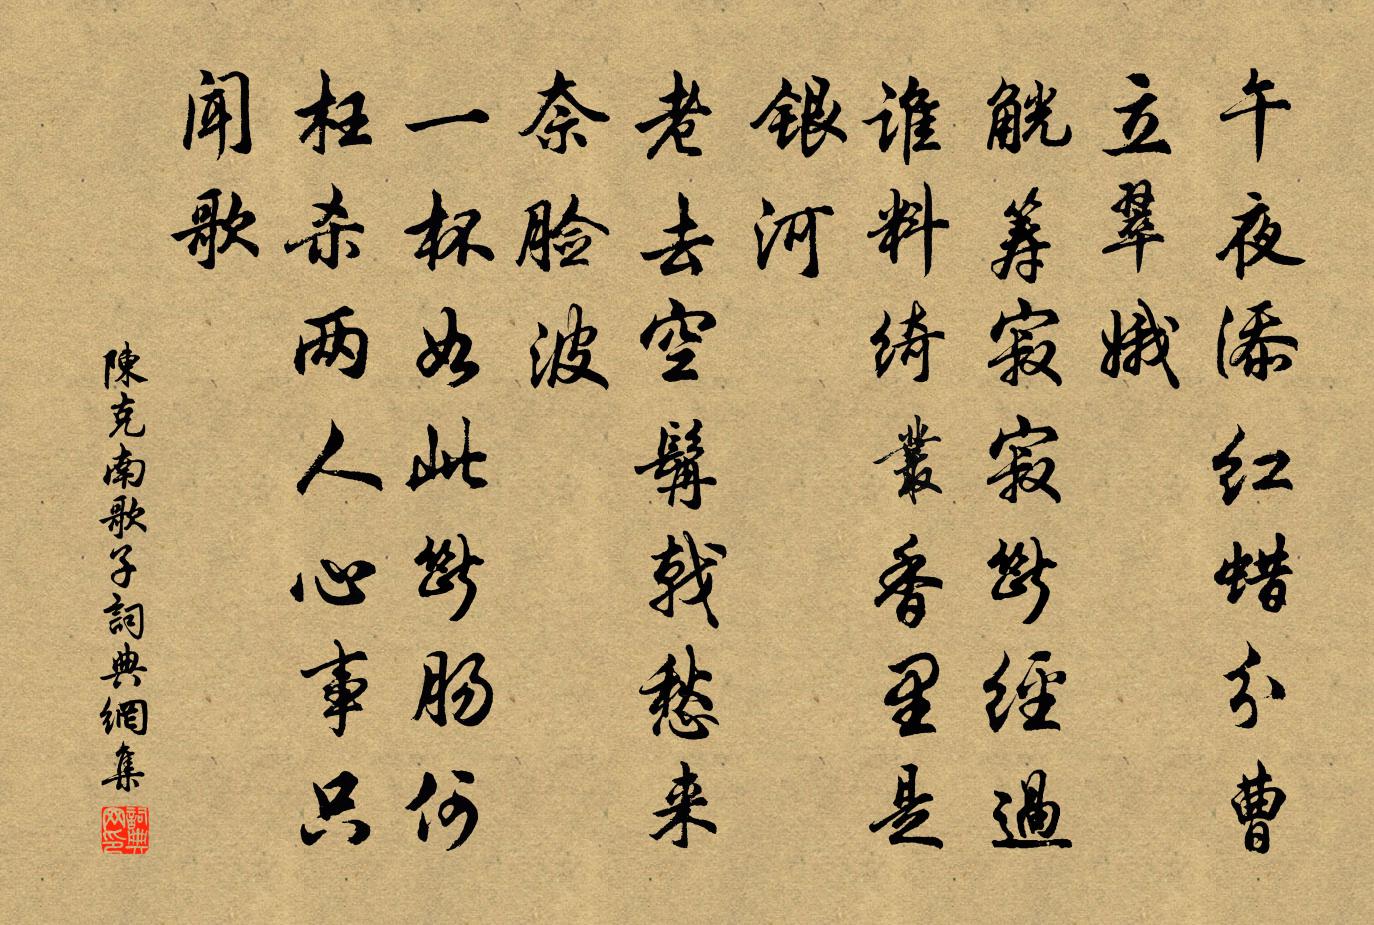 午夜添红蜡分曹
立翠娥
觥筹寂寂断经过
谁料绮丛香里是
银河
老去空髯戟愁来
奈脸波
一杯如此断肠何
枉杀两人心事只
闻歌
陳克南歌子詞典網集
詞典网印